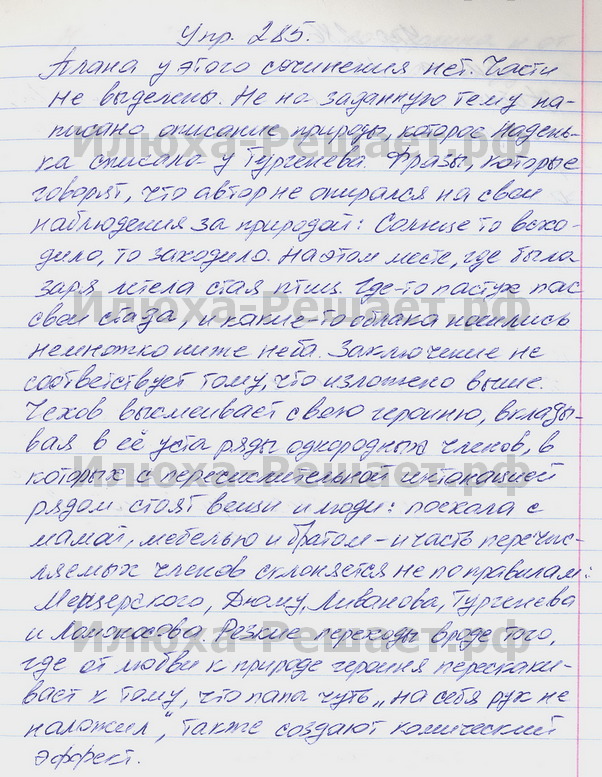 Упр. 285.
Плана у этого сочинения нет. Части
не выделены. Не на заданную тему на-
писано описание природы, которое Надень-
ка списала у Тургенева. Фразы, которые
говорят, что автор не опирался на свои
наблюдения за природой: Солнце то всхо-
дило, то заходило. На этом месте, где была
заря, летела стая птиц. Где-то пастух пас
свои стада, и какие-то облака носились
немножко ниже неба. Заключение не
соответствует тому, что изложено выше.
Чехов высмеивает свою героиню, вклады-
вая в её уста ряды однородных членов, в
которых с перечислительной интонацией
рядом стоят вещи и люди: поехала с
мамой, мебелью и братом – и часть перечис-
ляемых членов склоняется не по правилам:
Мерщерского, Дюму, Ливанова, Тургенева
и Ломоносова. Резкие переходы вроде того,
где от любви к природе героиня перескаки-
вает к тому, что папа чуть „на себя рук не
наложил“, также создают комический
эффект.
Илюха-Решает.рф
Илюха-Решает.рф
Илюха-Решает.рф
Илюха-Решает.рф